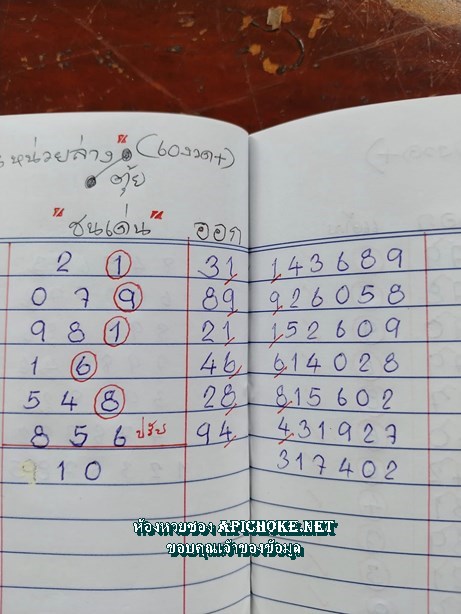 หน่วยล่าง (60งวด+)
ตุ้ย
"ชนเด่น" ออก
2 1 31 143689
0 7 9 89 926058
9 8 1 21 152609
1 6 46 614028
5 4 8 28 815602
8 5 6 ปรับ 94 431927
9 1 0 317402
ห้องหวยซอง APICHOKE.NET
ขอบคุณเจ้าของข้อมูล